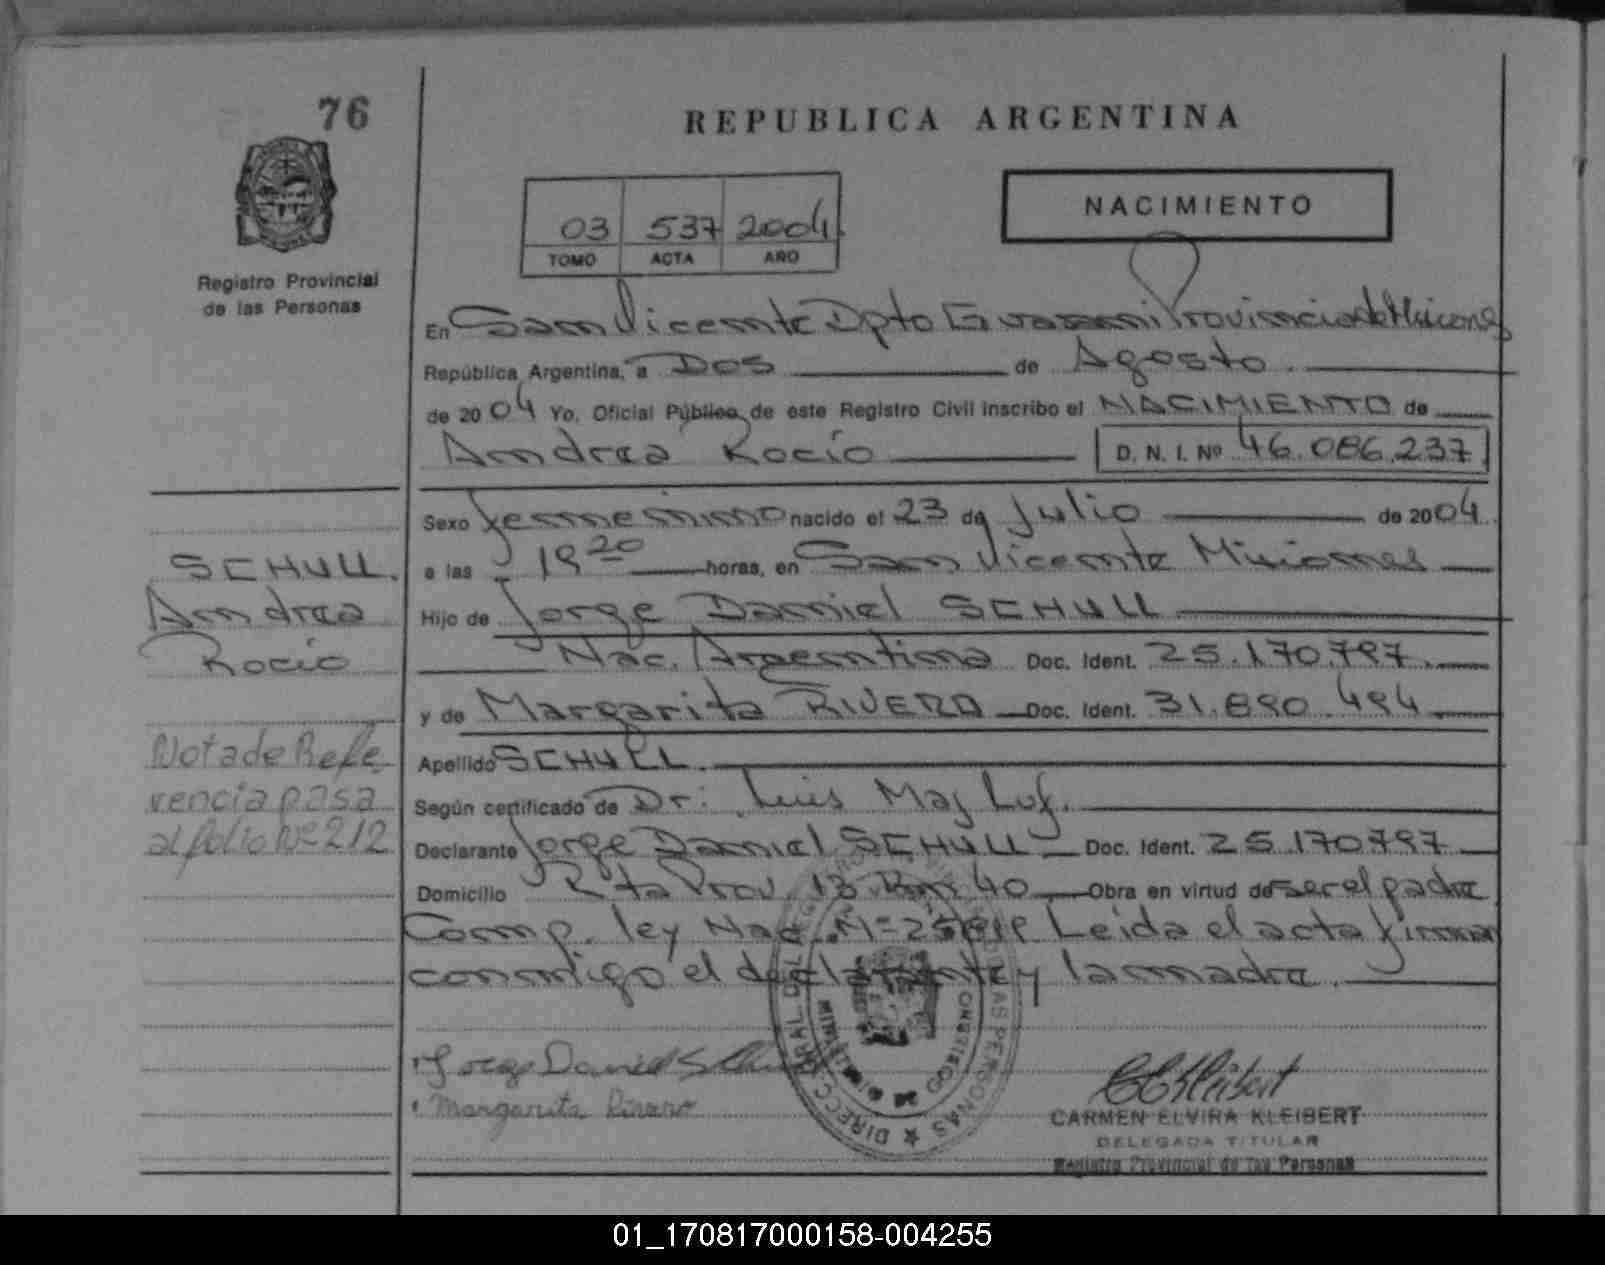 76
REPUBLICA ARGENTINA
03 537 2004
TOMO ACTA AÑO
NACIMIENTO
Registro Provincial
de las Personas
En San Vicente Dpto Guarani Provincia de Misiones
República Argentina, a Dos de Agosto
de 2004 Yo, Oficial Público de este Registro Civil inscribo el NACIMIENTO de
Andrea Rocío D. N. I. Nº 46.086.237
Sexo femenino nacido el 23 de Julio de 2004
a las horas, en San Vicente Misiones
Hijo de Jorge Daniel SCHULL
Nac. Argentina Doc. Ident. 25.170.797
y de Margarita RIVERO Doc. Ident. 31.890.494
Apellido SCHULL
Según certificado de Dr. Luis
Declarante Jorge Daniel SCHULL Doc. Ident. 25.170.797
Domicilio Rta Prov. 13 Km 40 Obra en virtud de ser el padre
Comp. ley Nac. Leida el acta firman
conmigo el declarante y la madre.
SCHULL.
Andrea
Rocío
Nota de Refe
rencia pasa
al folio Nº 212
Jorge Daniel Schull
Margarita Rivero
CARMEN ELVIRA KLEIBERT
DELEGADA TITULAR
Registro Provincial de las Personas
01_170817000158-004255